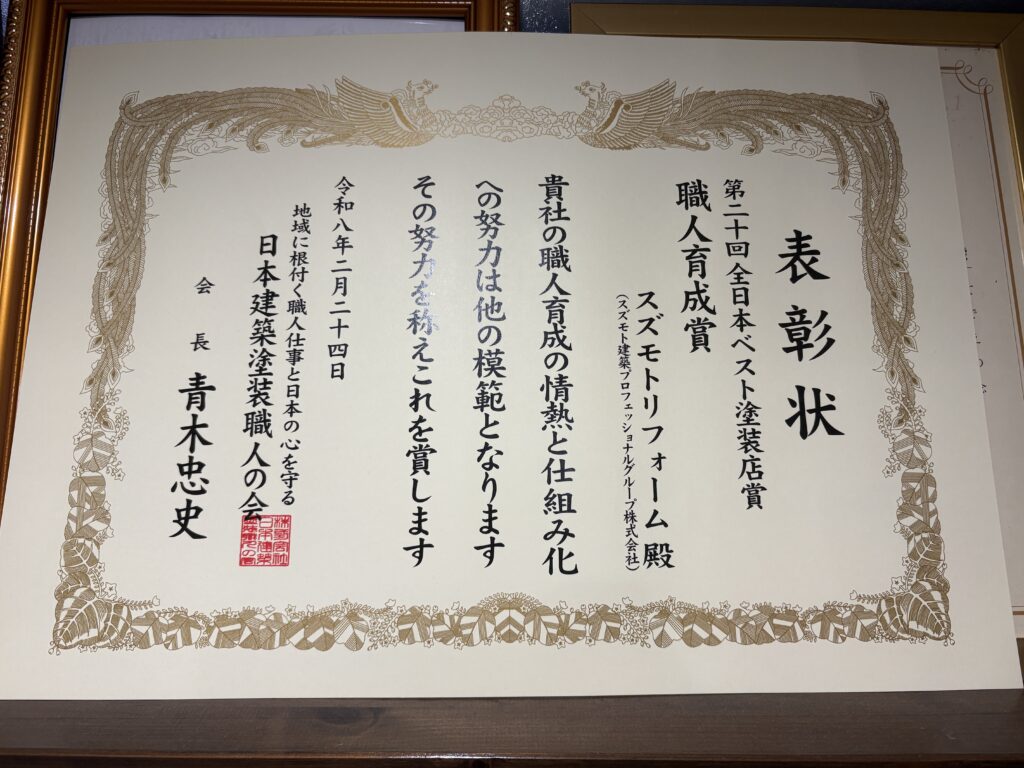 表彰状
第二十回全日本ベスト塗装店賞
職人育成賞
スズモトリフォーム殿
(スズモト建築プロフェッショナルグループ株式会社)
貴社の職人育成の情熱と仕組み化
への努力は他の模範となります
その努力を称えこれを賞します
令和八年二月二十四日
地域に根付く職人仕事と日本の心を守る
日本建築塗装職人の会
会長 青木忠史